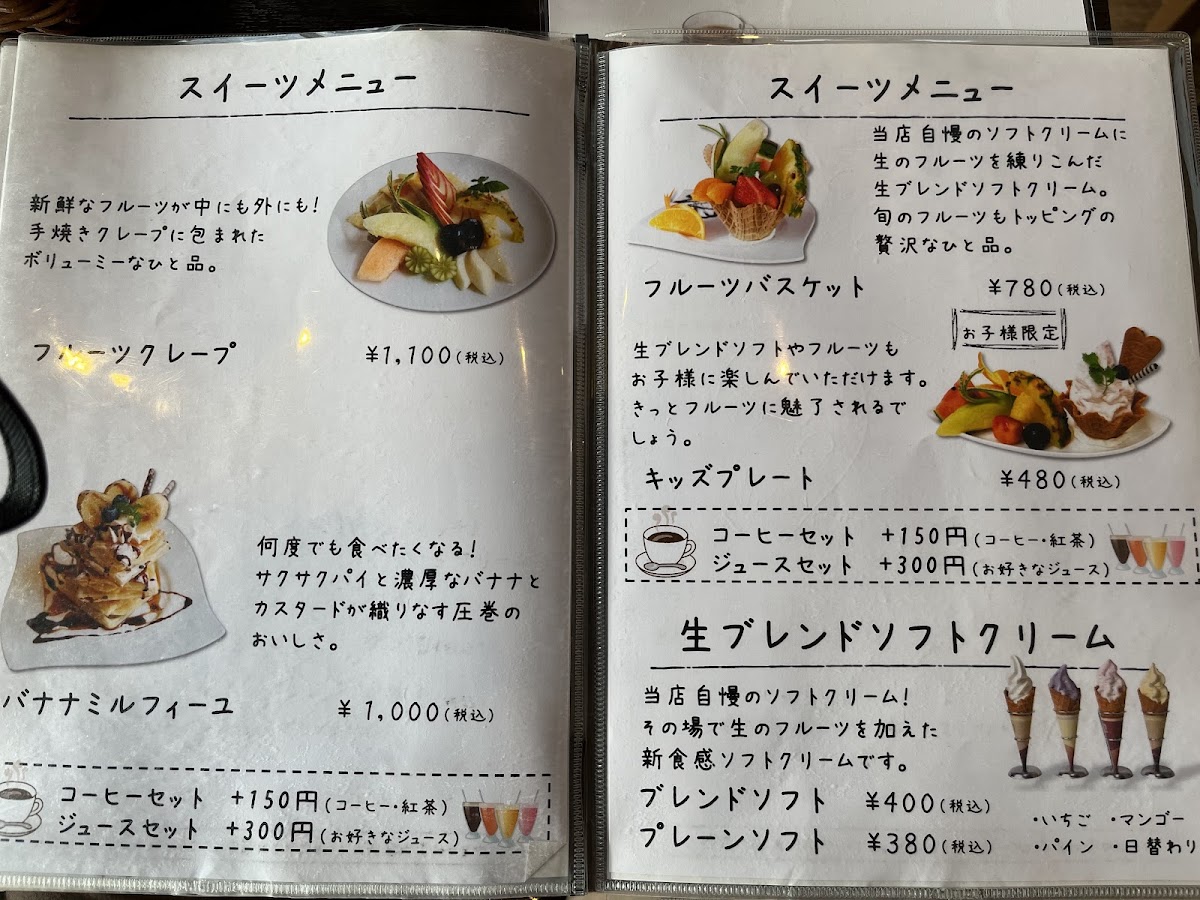 スイーツメニュー
新鮮なフルーツが中にも外にも!
手焼きクレープに包まれた
ボリューミーなひと品。
フルーツクレープ ¥1,100(税込)
何度でも食べたくなる!
サクサクパイと濃厚なバナナと
カスタードが織りなす圧巻の
おいしさ。
バナナミルフィーユ ¥1,000(税込)
コーヒーセット +150円(コーヒー・紅茶)
ジュースセット +300円(お好きなジュース)
スイーツメニュー
当店自慢のソフトクリームに
生のフルーツを練りこんだ
生ブレンドソフトクリーム。
旬のフルーツもトッピングの
贅沢なひと品。
フルーツバスケット ¥780(税込)
お子様限定
生ブレンドソフトやフルーツも
お子様に楽しんでいただけます。
きっとフルーツに魅了されるで
しょう。
キッズプレート ¥480(税込)
コーヒーセット +150円(コーヒー・紅茶)
ジュースセット +300円(お好きなジュース)
生ブレンドソフトクリーム
当店自慢のソフトクリーム!
その場で生のフルーツを加えた
新食感ソフトクリームです。
ブレンドソフト ¥400(税込)
プレーンソフト ¥380(税込)
・いちご ・マンゴー
・パイン ・日替わり